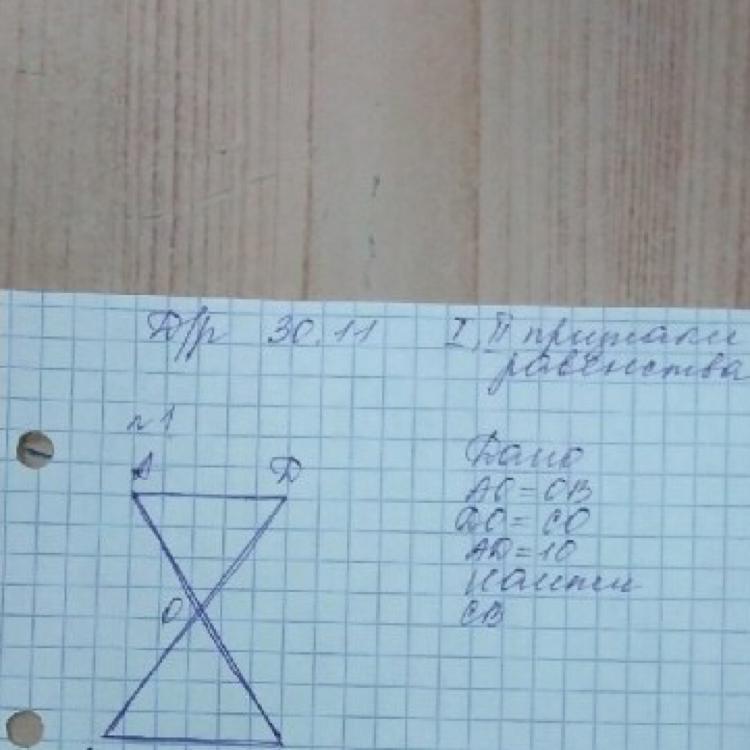 Д/р 30.11
I, II признаки
равенства
n1
A Д
O
Дано
AO = OB
ДO = CO
AД = 10
Найти
CB